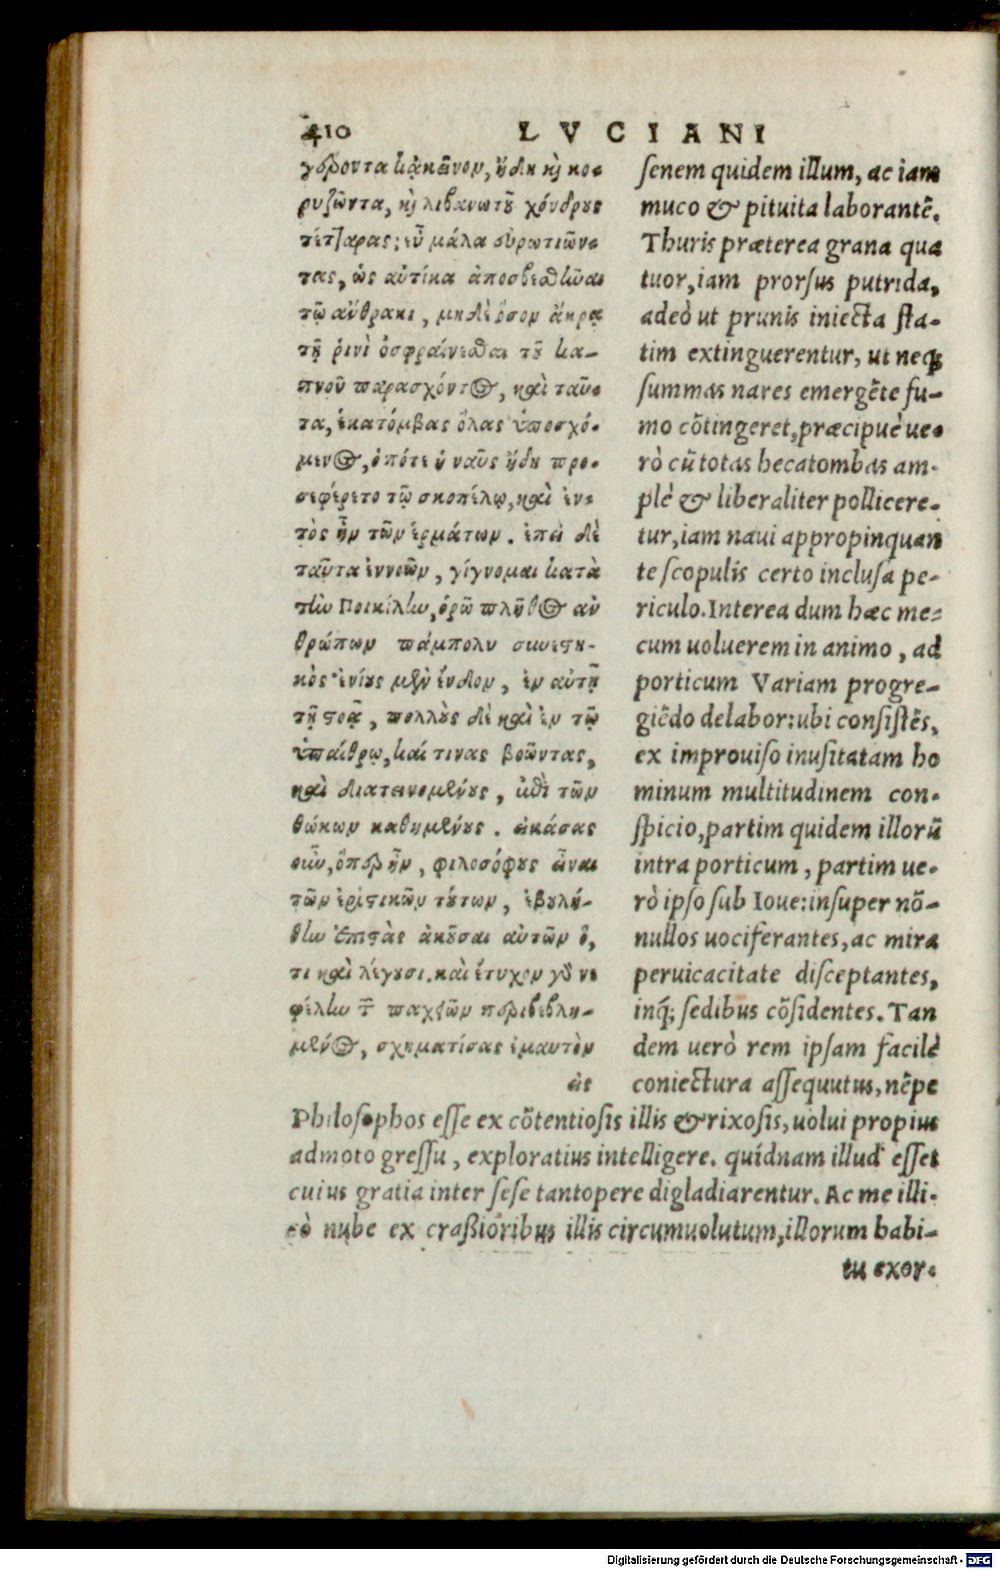 410 LVCIANI
γέροντα κἀκεῖνον, ἤδη κỳ κο-
ρυζῶντα, κỳ λιβανωτοῦ χόνδρους
τέτταρας; εὖ μάλα εὐρωτιῶν-
τας, ὡς αὐτίκα ἀποσβεσθῆναι
τῷ ἄνθρακι, μηδὲ ὅσον ἄκρᾳ
τῇ ῥινὶ ὀσφραίνεσθαι τοῦ κα-
πνοῦ παρασχόντος, καὶ ταῦ-
τα, ἑκατόμβας ὅλας ὑποσχό-
μενος, ὁπότε ἡ ναῦς ἤδη προ-
σεφέρετο τῷ σκοπέλῳ, καὶ ἐν-
τὸς ἦν τῶν ἑρμάτων. ἐπεὶ δὲ
ταῦτα ἐννοῶν, γίγνομαι κατὰ
τὴν Ποικίλην, ὁρῶ πλῆθος ἀν
θρώπων πάμπολυ συνεστη-
κὸς ἐνίους μὲν ἔνδον, ἐν αὐτῇ
τῇ στοᾷ, πολλοὺς δὲ καὶ ἐν τῷ
ὑπαίθρῳ, καί τινας βοῶντας,
καὶ διατεινομένους, ἐπὶ τῶν
θώκων καθημένους. εἰκάσας
οὖν, ὅπερ ἦν, φιλοσόφους εἶναι
τῶν ἐριστικῶν τούτων, ἐβουλή-
θην ἐπιστὰς ἀκοῦσαι αὐτῶν ὅ,
τι καὶ λέγουσι. καὶ ἔτυχον γὰρ νε
φέλην τῶν παχειῶν περιβεβλη-
μένος, σχηματίσας ἐμαυτὸν
εἰς
senem quidem illum, ac iam
muco & pituita laborantē.
Thuris præterea grana qua
tuor, iam prorsus putrida,
adeò ut prunis iniecta sta-
tim extinguerentur, ut neq;
summas nares emergēte fu-
mo cōtingeret, præcipuè ue-
rò cū totas hecatombas am-
plè & liberaliter pollicere-
tur, iam naui appropinquan
te scopulis certo inclusa pe-
riculo. Interea dum hæc me-
cum uoluerem in animo, ad
porticum Variam progre-
giēdo delabor: ubi consistēs,
ex improuiso inusitatam ho
minum multitudinem con-
spicio, partim quidem illorū
intra porticum, partim ue-
rò ipso sub Ioue: insuper nō-
nullos uociferantes, ac mira
peruicacitate disceptantes,
inq́; sedibus cōsidentes. Tan
dem uerò rem ipsam facilè
coniectura assequutus, nēpe
Philosophos esse ex cōtentiosis illis & rixosis, uolui propius
admoto gressu, exploratius intelligere. quídnam illud esset
cuius gratia inter sese tantopere digladiarentur. Ac me illi-
cò nube ex crassioribus illis circumuolutum, illorum habi-
tu exor-
Digitalisierung gefördert durch die Deutsche Forschungsgemeinschaft - DFG